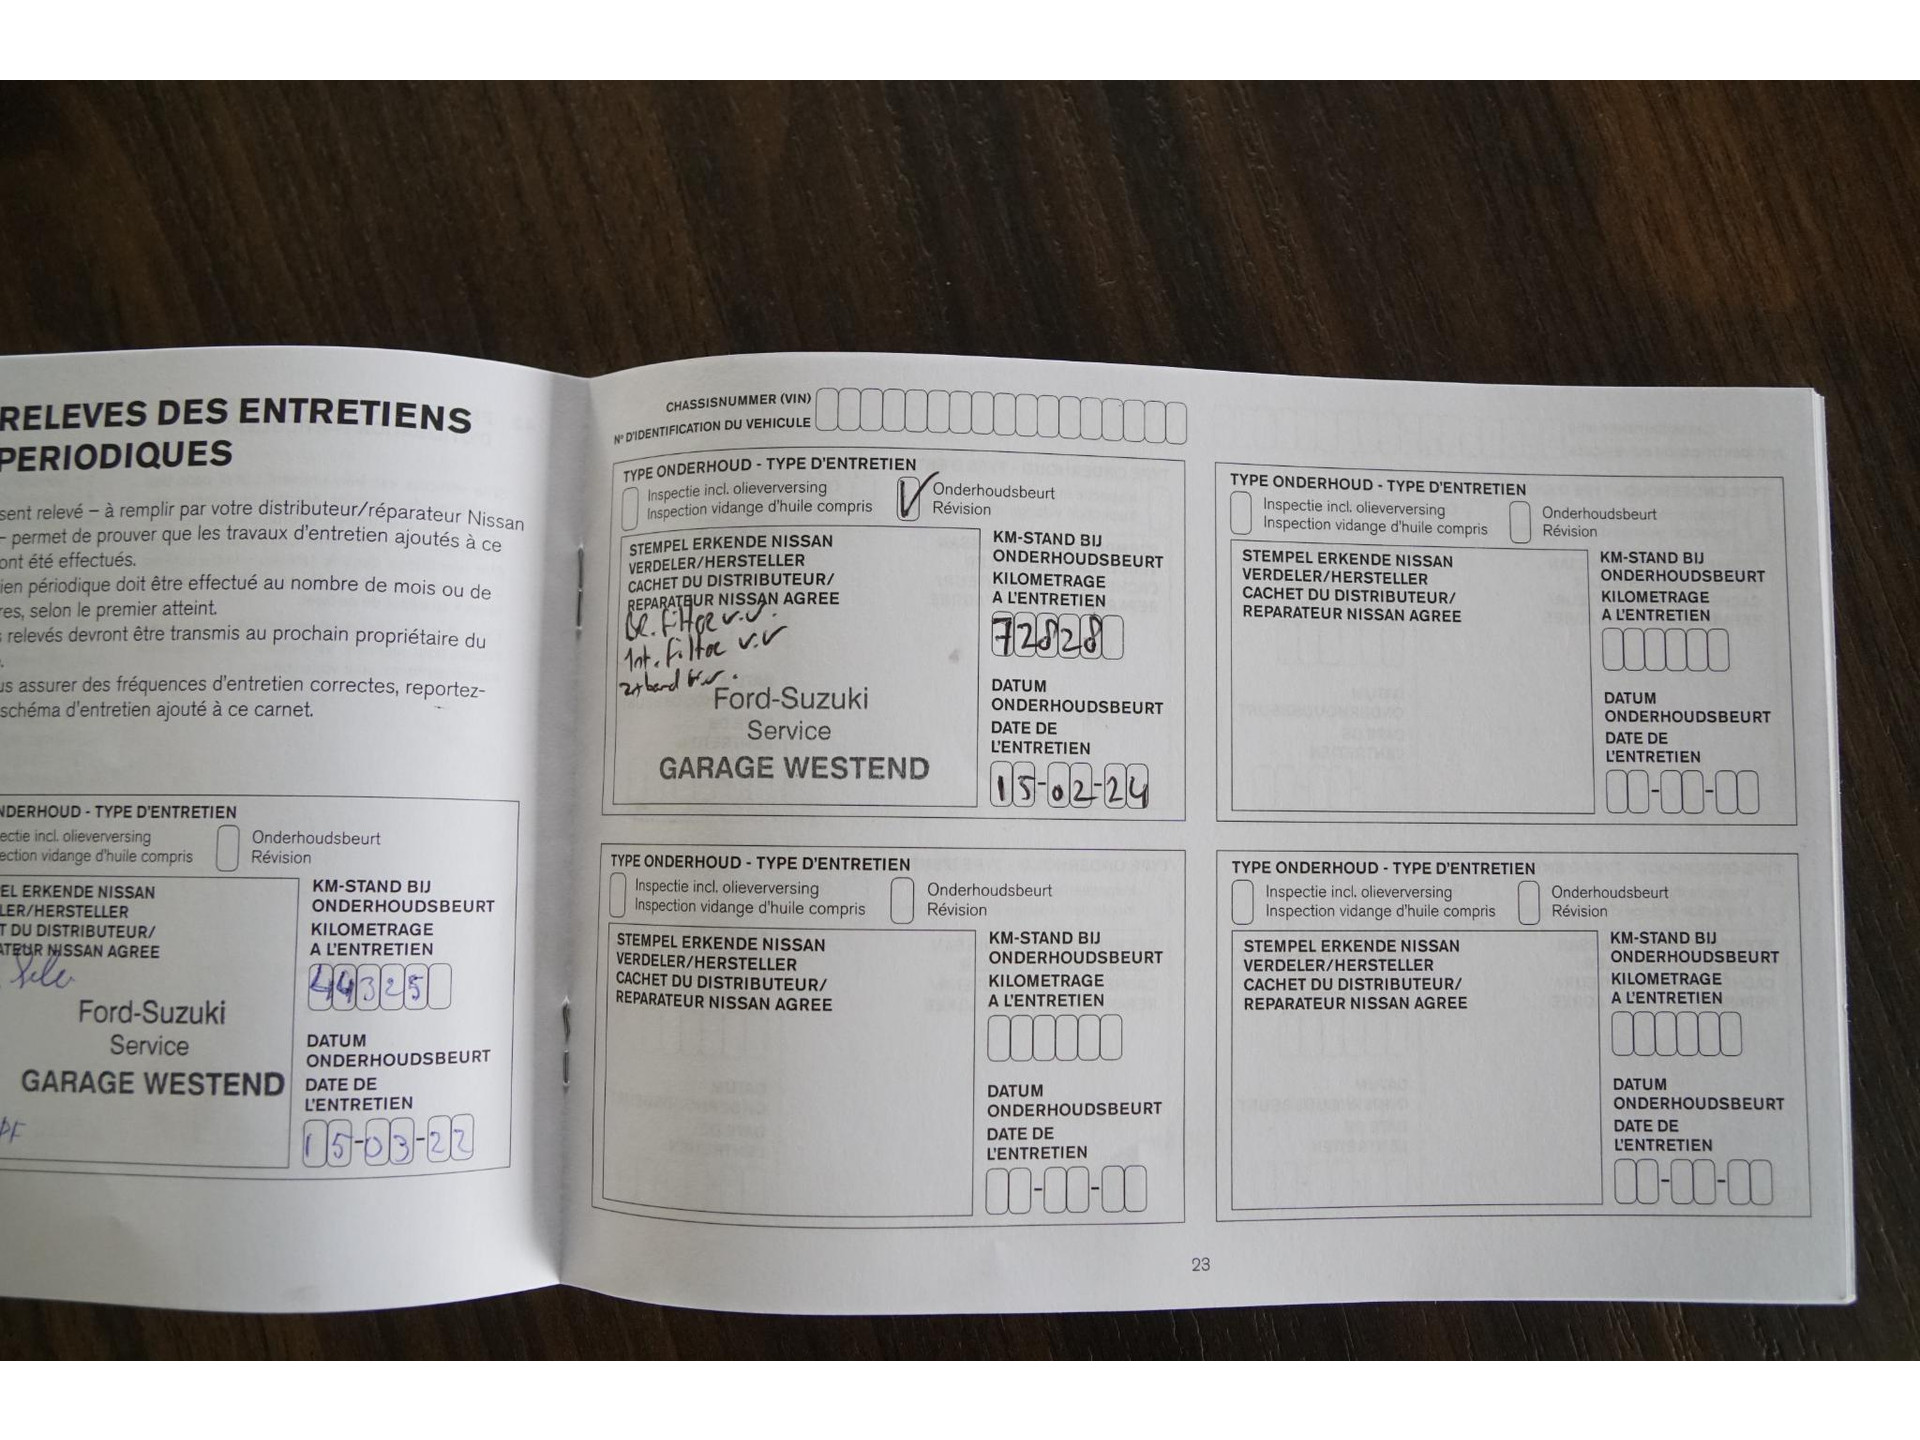 RELEVES DES ENTRETIENS
PERIODIQUES
sent relevé – à remplir par votre distributeur/réparateur Nissan
– permet de prouver que les travaux d'entretien ajoutés à ce
ont été effectués.
ien périodique doit être effectué au nombre de mois ou de
res, selon le premier atteint.
s relevés devront être transmis au prochain propriétaire du
us assurer des fréquences d'entretien correctes, reportez-
schéma d'entretien ajouté à ce carnet.
NDERHOUD - TYPE D'ENTRETIEN
ectie incl. olieverversing
ection vidange d'huile compris
Onderhoudsbeurt
Révision
EL ERKENDE NISSAN
LER/HERSTELLER
T DU DISTRIBUTEUR/
ATEUR NISSAN AGREE
Ford-Suzuki
Service
GARAGE WESTEND
KM-STAND BIJ
ONDERHOUDSBEURT
KILOMETRAGE
A L'ENTRETIEN
44325
DATUM
ONDERHOUDSBEURT
DATE DE
L'ENTRETIEN
15-03-22
CHASSISNUMMER (VIN)
N° D'IDENTIFICATION DU VEHICULE
TYPE ONDERHOUD - TYPE D'ENTRETIEN
Inspectie incl. olieverversing
Inspection vidange d'huile compris
Onderhoudsbeurt
Révision
STEMPEL ERKENDE NISSAN
VERDELER/HERSTELLER
CACHET DU DISTRIBUTEUR/
REPARATEUR NISSAN AGREE
v.v.
Int. Filter v.v
Ford-Suzuki
Service
GARAGE WESTEND
KM-STAND BIJ
ONDERHOUDSBEURT
KILOMETRAGE
A L'ENTRETIEN
72828
DATUM
ONDERHOUDSBEURT
DATE DE
L'ENTRETIEN
15-02-24
TYPE ONDERHOUD - TYPE D'ENTRETIEN
Inspectie incl. olieverversing
Inspection vidange d'huile compris
Onderhoudsbeurt
Révision
STEMPEL ERKENDE NISSAN
VERDELER/HERSTELLER
CACHET DU DISTRIBUTEUR/
REPARATEUR NISSAN AGREE
KM-STAND BIJ
ONDERHOUDSBEURT
KILOMETRAGE
A L'ENTRETIEN
DATUM
ONDERHOUDSBEURT
DATE DE
L'ENTRETIEN
TYPE ONDERHOUD - TYPE D'ENTRETIEN
Inspectie incl. olieverversing
Inspection vidange d'huile compris
Onderhoudsbeurt
Révision
STEMPEL ERKENDE NISSAN
VERDELER/HERSTELLER
CACHET DU DISTRIBUTEUR/
REPARATEUR NISSAN AGREE
KM-STAND BIJ
ONDERHOUDSBEURT
KILOMETRAGE
A L'ENTRETIEN
DATUM
ONDERHOUDSBEURT
DATE DE
L'ENTRETIEN
TYPE ONDERHOUD - TYPE D'ENTRETIEN
Inspectie incl. olieverversing
Inspection vidange d'huile compris
Onderhoudsbeurt
Révision
STEMPEL ERKENDE NISSAN
VERDELER/HERSTELLER
CACHET DU DISTRIBUTEUR/
REPARATEUR NISSAN AGREE
KM-STAND BIJ
ONDERHOUDSBEURT
KILOMETRAGE
A L'ENTRETIEN
DATUM
ONDERHOUDSBEURT
DATE DE
L'ENTRETIEN
23